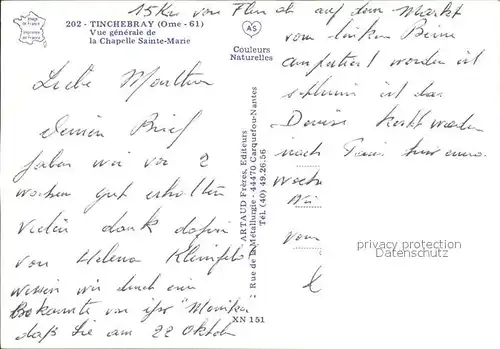 15 Km von Fl de auf dem Markt
202 - TINCHEBRAY (Orne - 61)
Vue générale de
la Chapelle Sainte-Marie
Image de France
Imprimée en France
AS
Couleurs
Naturelles
Liebe
Deinen Brief
haben wir vor 2
wochen gut erhalten
vielen dank dafür
von Helena
wissen wir durch eine
Bekannte von ihr "Monika
daß Sie am 22 Oktob
ARTAUD Frères, Editeurs
Rue de la Métallurgie - 44470 Carquefou-Nantes
Tél. (40) 49.26.56
XN 151
vom linken Beine
amputiert worden ist
schlimm ist das
Denise
nach
Woche
Wi
vom
privacy protection
Datenschutz